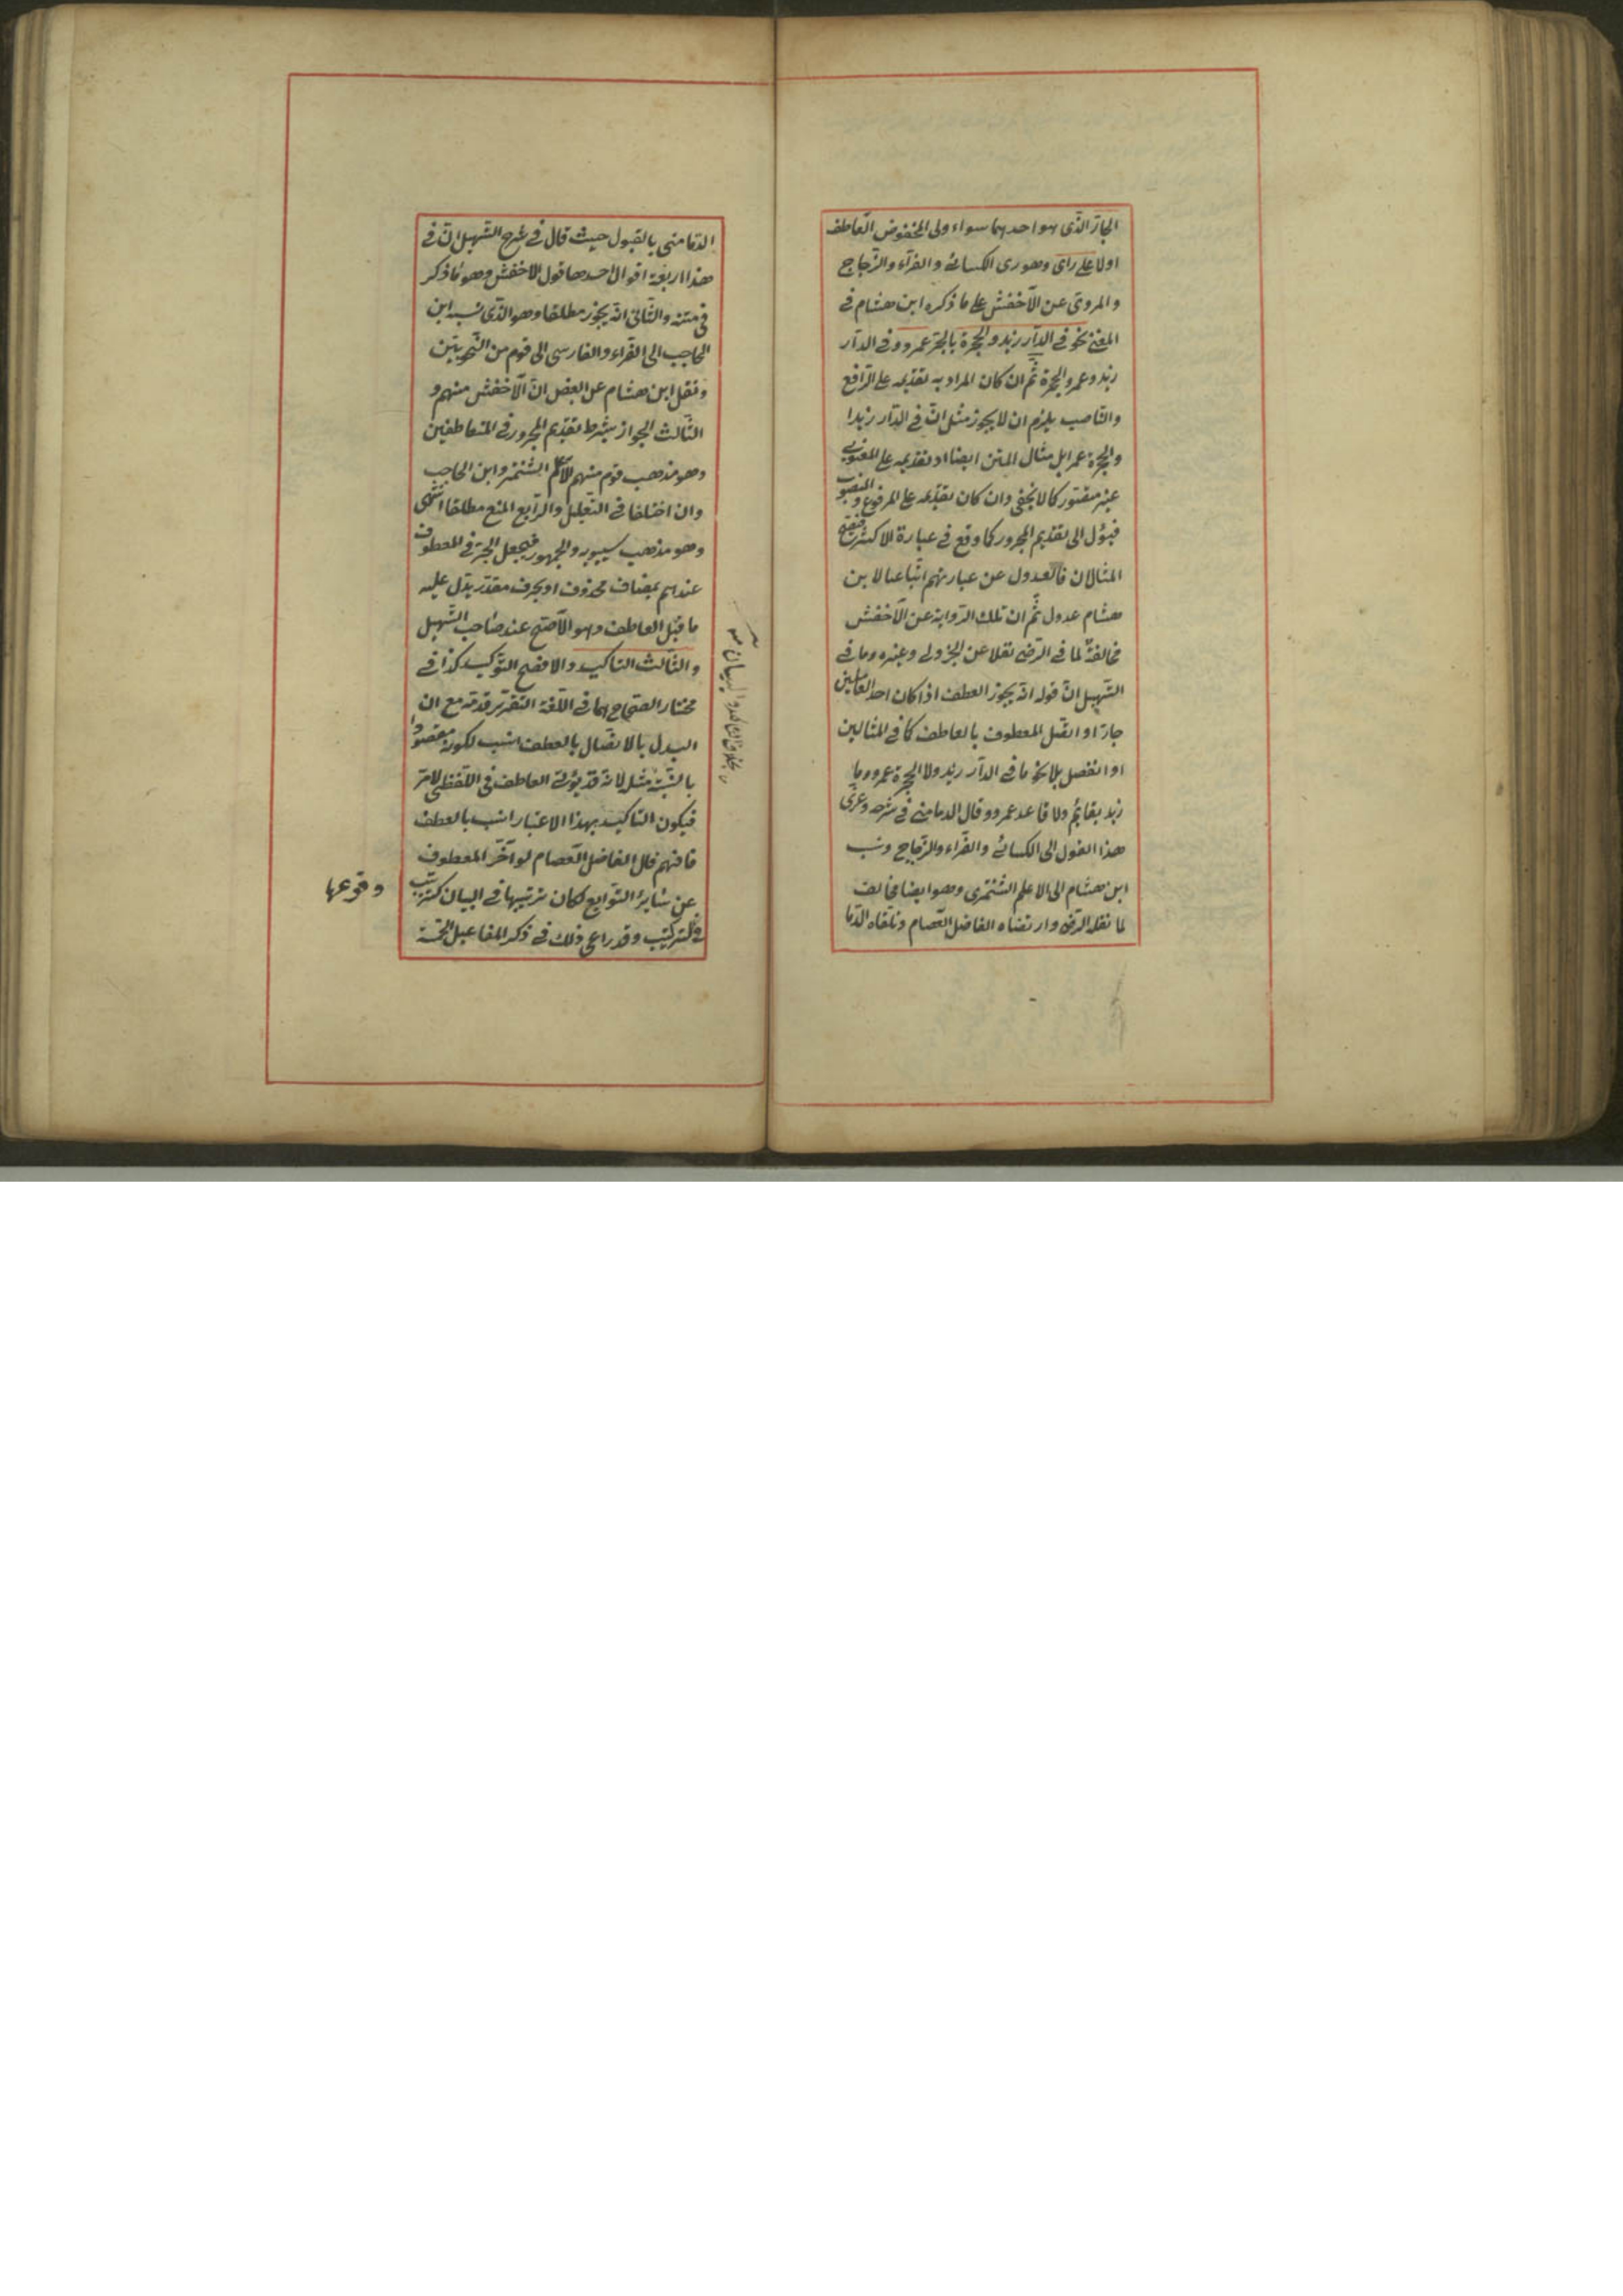 الجارّ الذى هو احدهما سواء ولى المخفوض العاطف
اولا على راى وهو رى الكسائى والفرّاء والزجاج
والمروىّ عن الاخفش على ما ذكره ابن هشام فى
المغنى نحو فى الدار زيد والحجرة بالجرّ عمرو وفى الدار
زيد وعمرو الحجرة ثم ان كان المراد به تقديمه على الرافع
والناصب يلزم ان لا يجوز مثل انّ فى الدار زيدا
والحجرة عمرا بل مثال المتن ايضا او تقديمه على المعنوى
غير متصور كما لا يخفى وان كان تقديمه على المرفوع والمنصوب
فيؤل الى تقديم المجرور كما وقع فى عبارة الاكثر فيقبح
المثالان فالعدول عن عبارتهم اتباعا لابن
هشام عدول ثم ان تلك الرواية عن الاخفش
مخالفة لما فى الرضى نقلا عن الجزولى وغيره وما فى
التسهيل انّ قوله انه يجوز العطف اذا كان احد العاملين
جارّا واتصل المعطوف بالعاطف كما فى المثالين
او انفصل بلا نحو ما فى الدار زيد ولا الحجرة عمرو وما
زيد بقائم ولا قاعد عمرو وقال الدمامينى فى شرحه وعزى
هذا القول الى الكسائى والفراء والزجاج ونسب
ابن هشام الى الاعلم الشنتمرى وهو ايضا مخالف
لما نقله الرضى وارتضاه الفاضل العصام وتلقاه الدما
الدمامينى بالقبول حيث قال فى شرح التسهيل انّ فى
هذا اربعة اقوال احدها قول الاخفش وهو ما ذكر
فى متنه والثانى انه يجوز مطلقا وهو الذى نسبه ابن
الحاجب الى الفراء والفارسى الى قوم من النحويين
ونقل ابن هشام عن البعض انّ الاخفش منهم و
الثالث الجواز بشرط تقديم المجرور فى المتعاطفين
وهو مذهب قوم منهم الاعلم الشنتمر وابن الحاجب
وان اختلفا فى التعليل والرابع المنع مطلقا انتهى
وهو مذهب سيبويه والجمهور فيجعل الجرّ فى المعطوف
عندهم بمضاف محذوف او بحرف مقدّر يدلّ عليه
ما قبل العاطف وهو الاصحّ عند صاحب التسهيل
والثالث التاكيد والافصح التوكيد كذا فى
مختار الصحاح هما فى اللغة التقرير قدمه مع ان
البدل بالاتصال بالعطف انسب لكونه مقصودا
بالنسبة مثله لانه قد يؤتى العاطف فى اللفظى لامر
فيكون التاكيد بهذا الاعتبار انسب بالعطف
فافهم قال الفاضل العصام لو اخّر المعطوف
عن سائر التوابع لكان ترتيبها فى البيان كترتيب
فى التركيب وقد راعى ذلك فى ذكر المفاعيل الخمسة
وقوعها